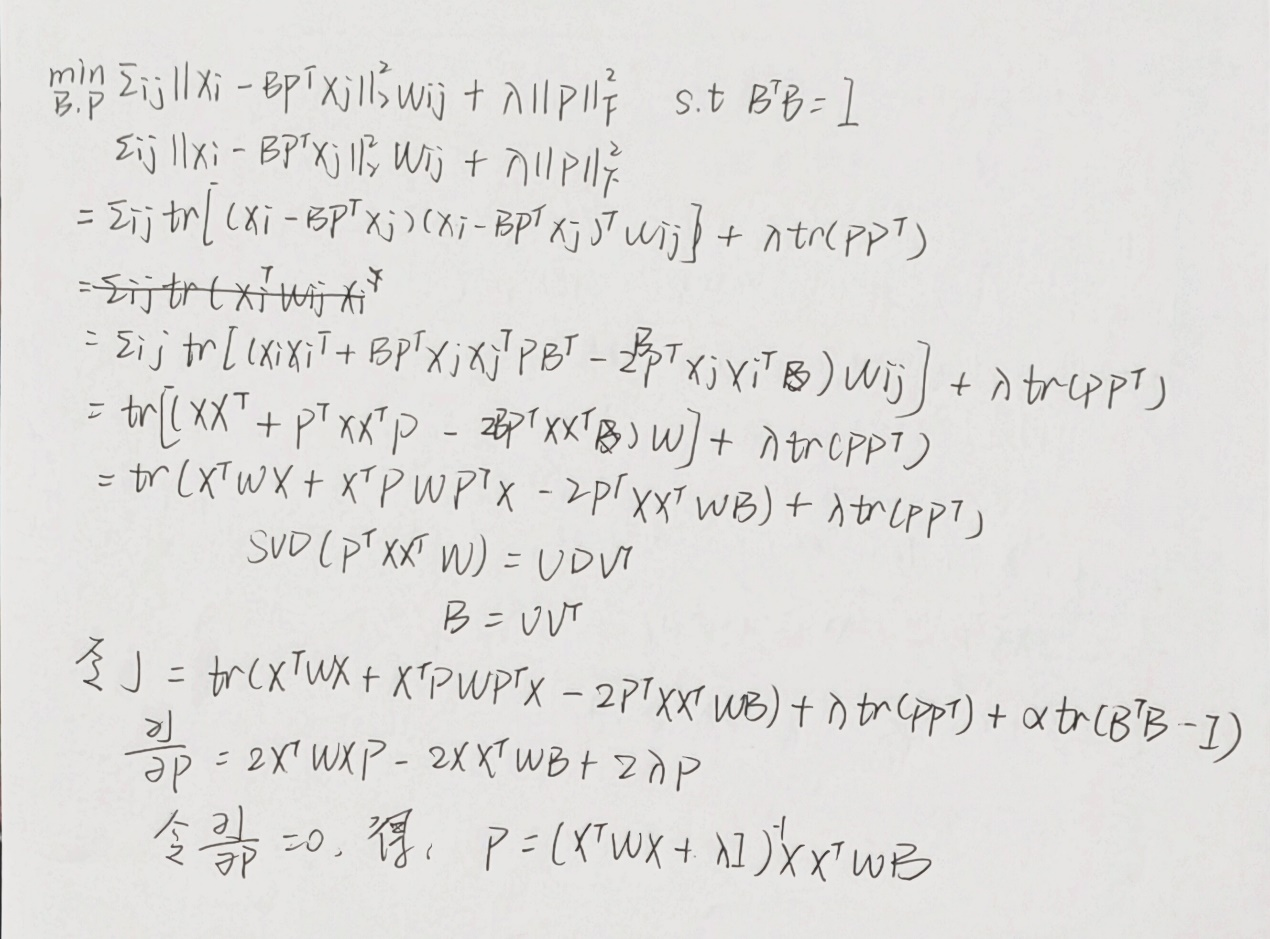 min Σij ||Xi - BPᵀXj||₂² Wij + λ||P||_F² s.t BᵀB = I
B.P
Σij ||Xi - BPᵀXj||₂² Wij + λ||P||_F²
= Σij tr[(Xi - BPᵀXj)(Xi - BPᵀXj)ᵀ Wij] + λtr(PPᵀ)
= Σij tr(XiᵀWijXi
= Σij tr[(XiXiᵀ + BPᵀXjXjᵀPBᵀ - 2BPᵀXjXiᵀ)Wij] + λtr(PPᵀ)
= tr[(XXᵀ + PᵀXXᵀP - 2BPᵀXXᵀ)W] + λtr(PPᵀ)
= tr(XᵀWX + XᵀPWPᵀX - 2PᵀXXᵀWB) + λtr(PPᵀ)
SVD(PᵀXXᵀW) = UDVᵀ
B = UVᵀ
令 J = tr(XᵀWX + XᵀPWPᵀX - 2PᵀXXᵀWB) + λtr(PPᵀ) + αtr(BᵀB - I)
∂J/∂P = 2XᵀWXP - 2XXᵀWB + 2λP
令 ∂J/∂P = 0. 得, P = (XᵀWX + λI)⁻¹XXᵀWB